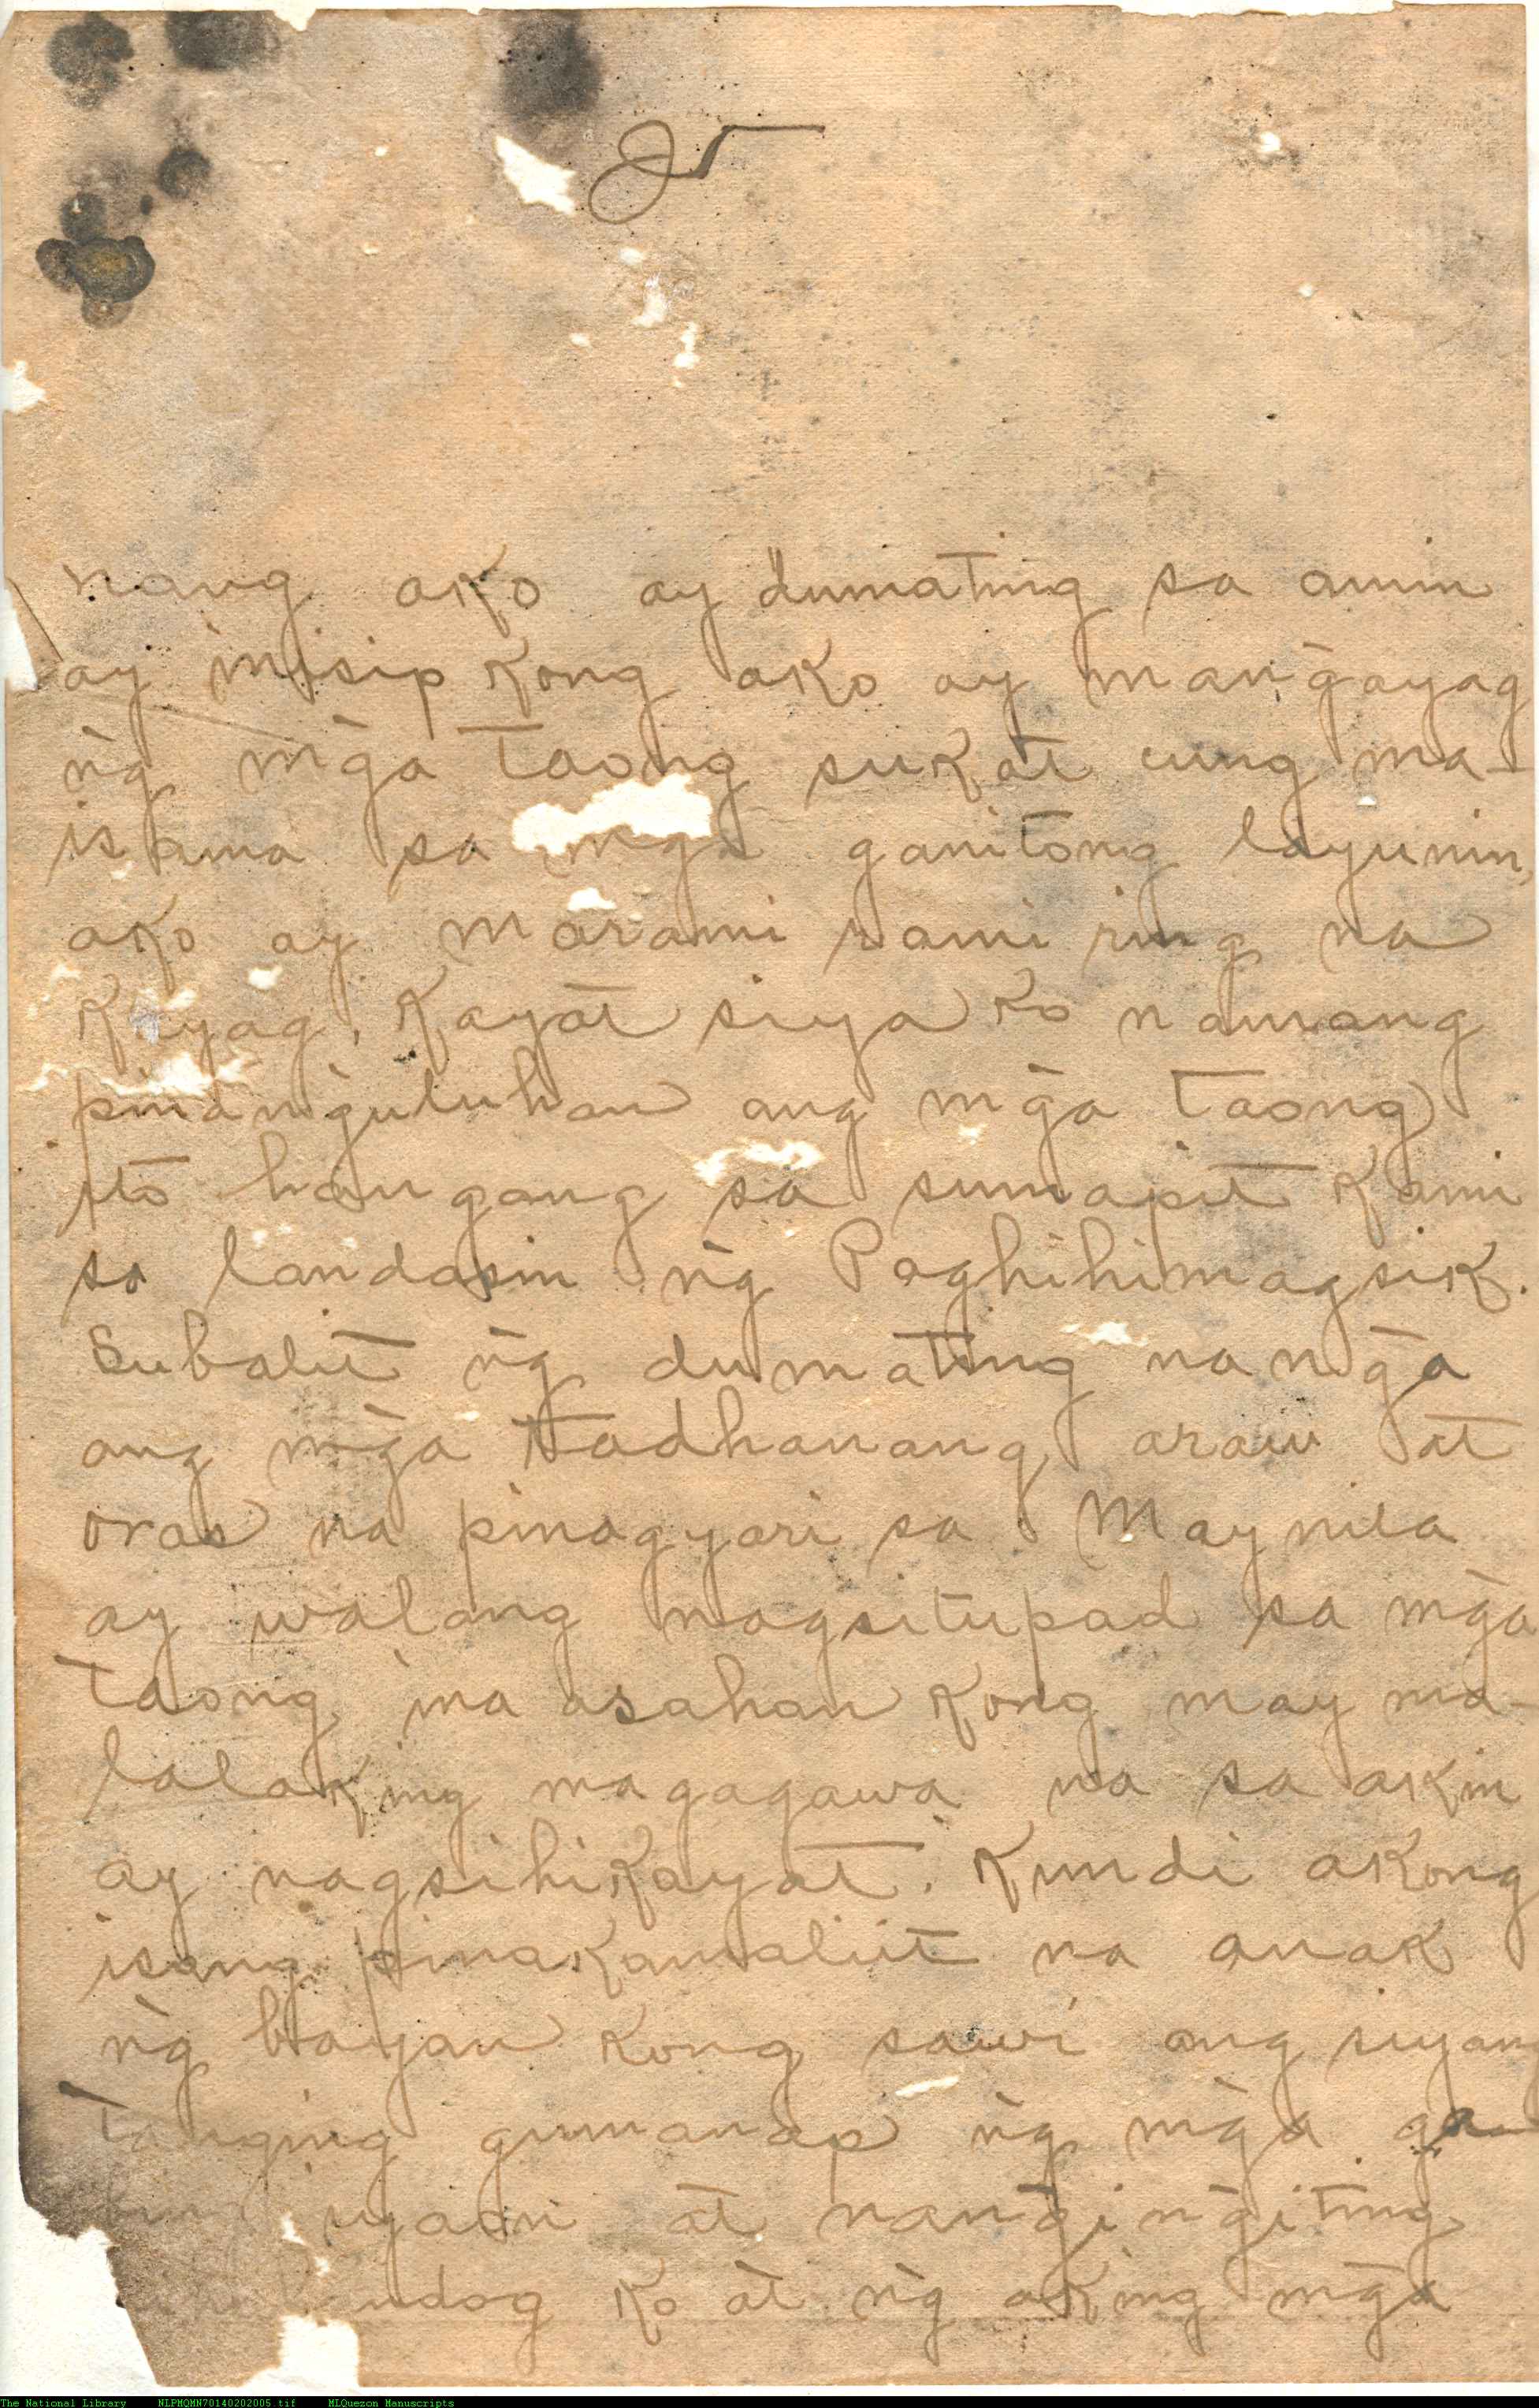 25
nang ako ay dumating sa amin
ay inisip kong ako ay mang̃ayag
ng̃ mg̃a taong sukat cung ma-
isama sa mga ganitong layunin,
ako ay marami rami ring na
kayag, kayat siya ko namang
pinang̃uluhan ang mg̃a taong
ito hangang sa sumapit kami
sa landasin ng̃ Paghihimagsik.
Subalit ng̃ dumating na ng̃a
ang mg̃a tadhanang araw at
oras na pinagyari sa Maynila
ay walang nagsitupad sa mg̃a
taong ina asahan kong may ma-
lalaking magagawa na sa akin
ay nagsihikayat. Kundi akong
isang pinakamaliit na anak
ng̃ bayan kong sawi ang siyang
tanging gumanap ng̃ mg̃a ga-
niyaon at nang̃ing̃iting
ko at ng̃ aking mg̃a
The National Library NLPMQMN70140202005.tif MLQuezon Manuscripts